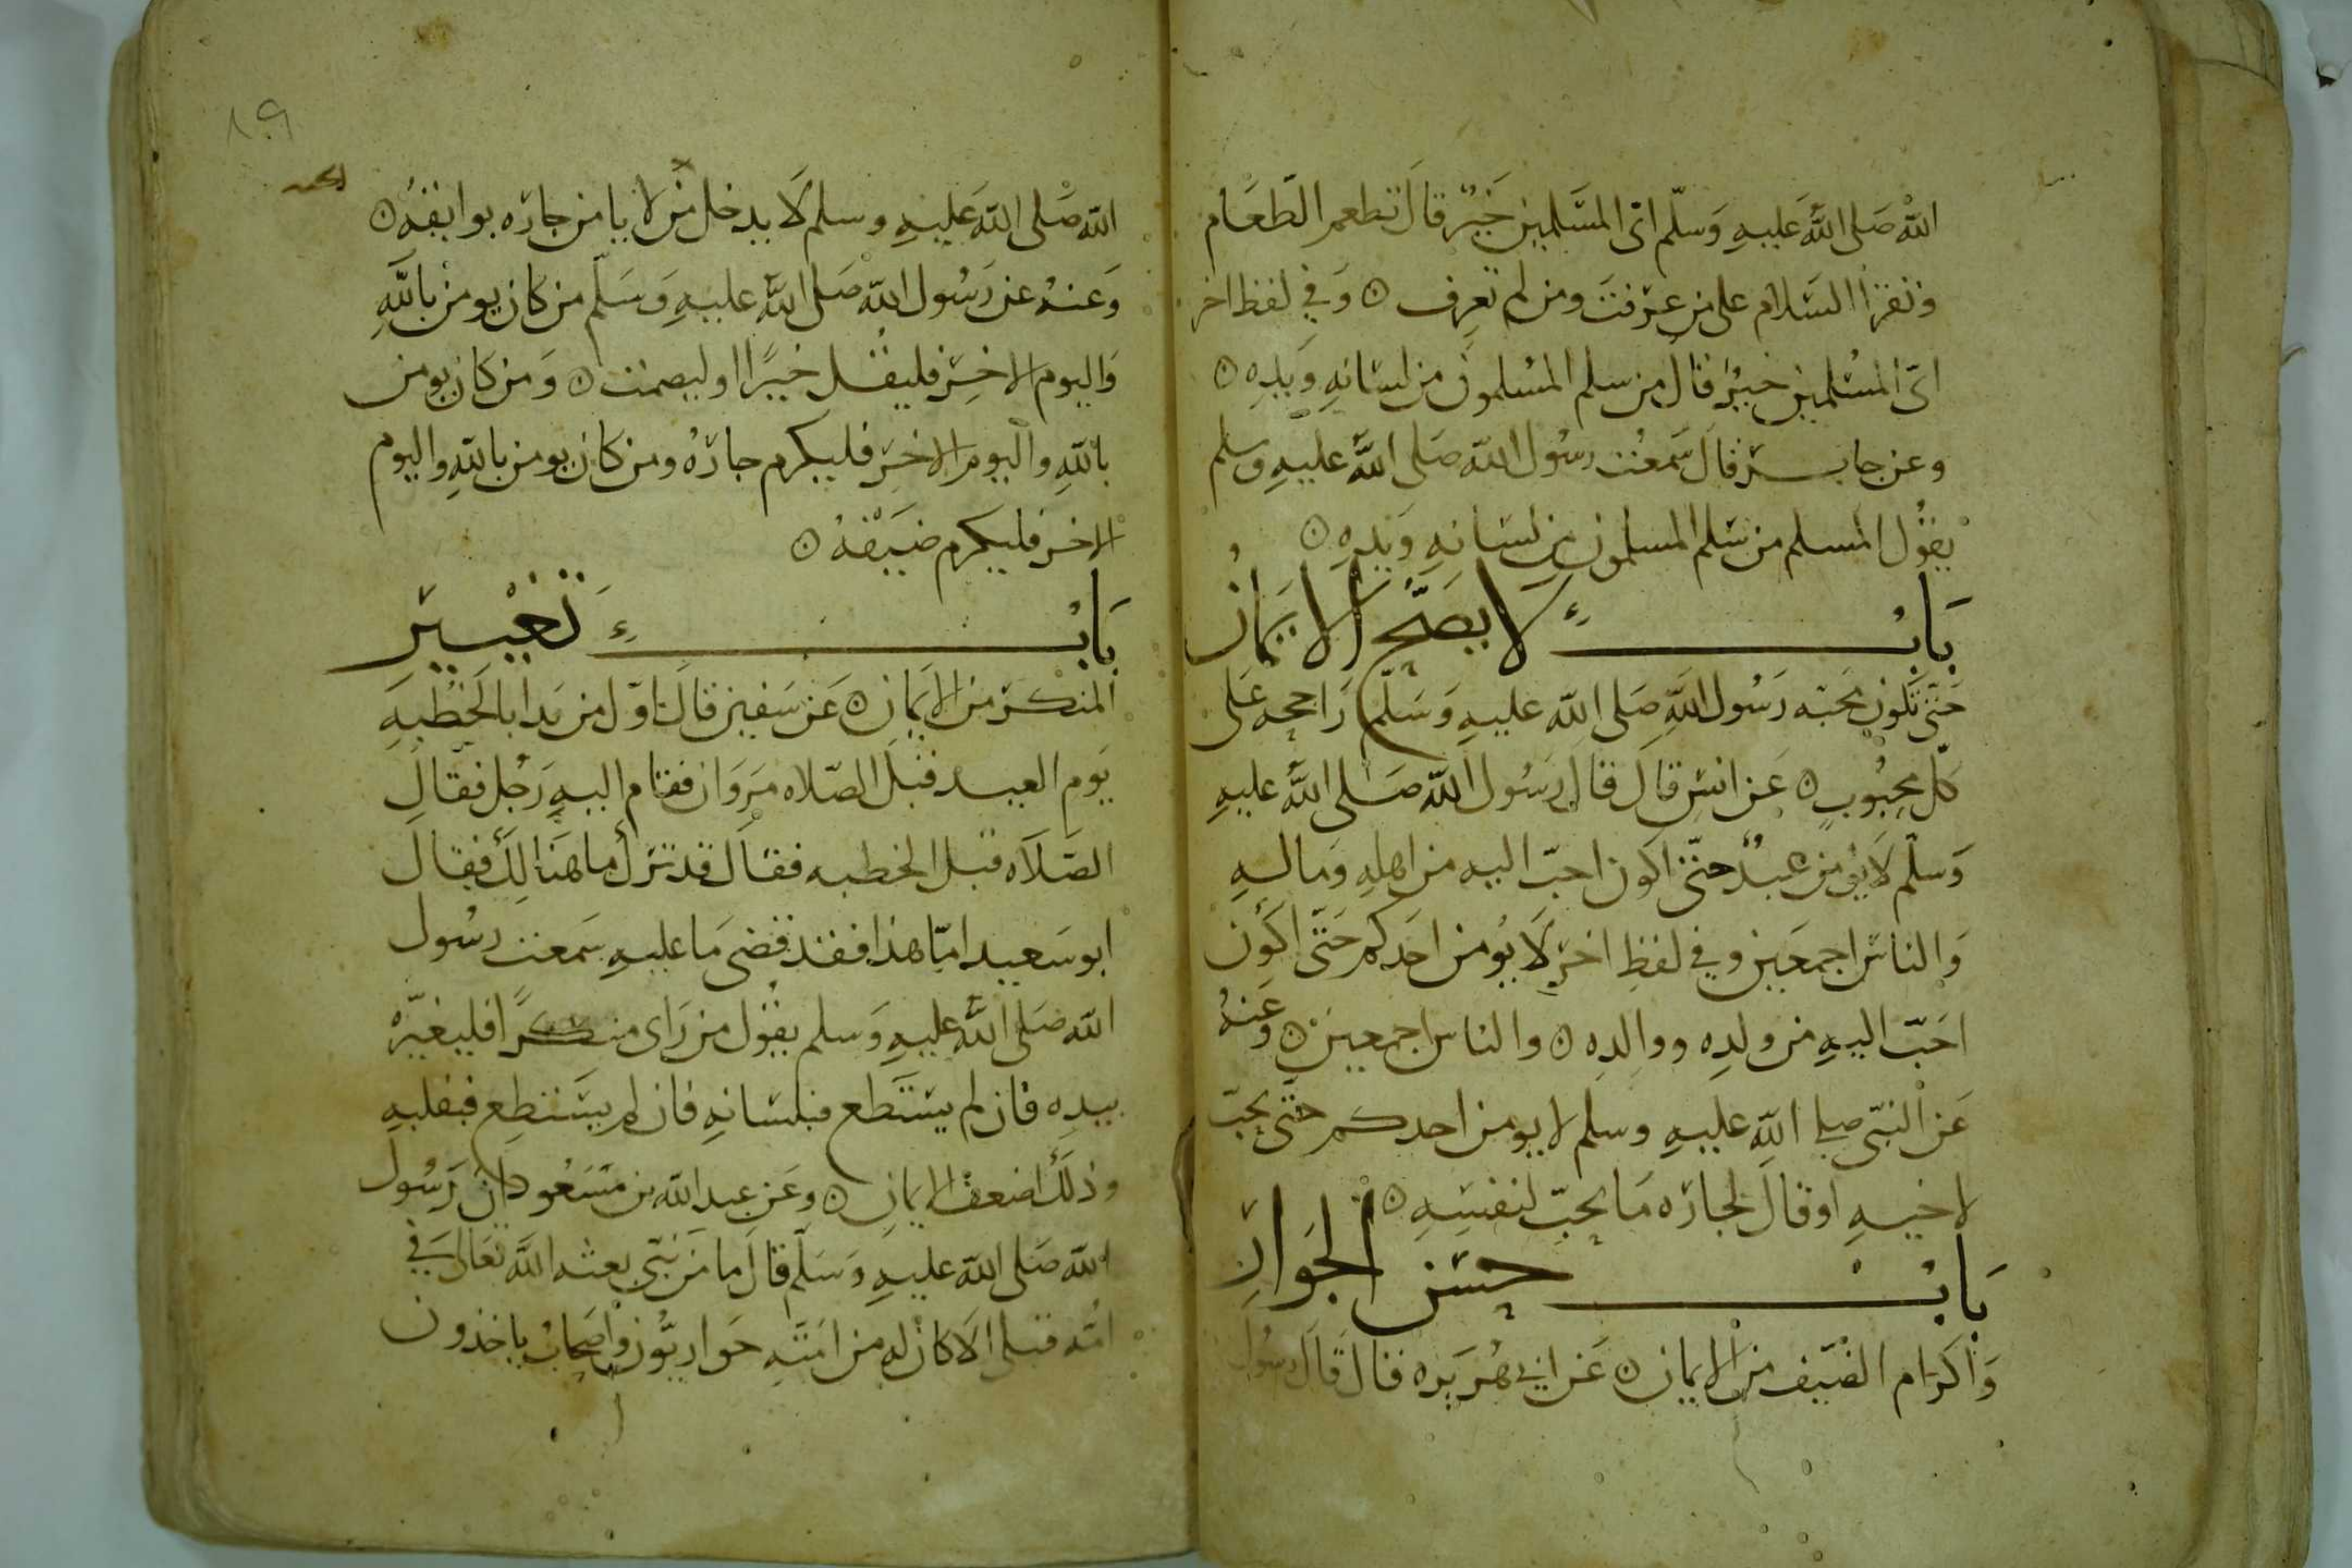 الله صَلى الله عَليهِ وَسَلّم اىّ المسَلمين خَيرٌ قالَ تطعم الطعَام
وتقرا السَلام على من عرَفتَ ومن لم تعرِف ٥ وَفي لفظ اخر
اىّ المسْلمين خيرٌ قالَ من سلم المسْلمونَ من لسَانهِ وَيدِه ٥
وعن جابـــر قالَ سَمعْت رسُول الله صَلى اللهُ عليهِ وسلم
يقوُل المسلم من سَلم المسلمون من لسَانهِ وَيَدِه ٥
بَابُ لا يصَحّ الايمَانُ
حَتىّ تكون محَبّه رَسُول اللهِ صَلى الله عليهِ وَسَلّم رَاجحه عَلى
كلّ محبُوبٍ ٥ عَن انسٍ قالَ قالَ رَسُول الله صَلى اللهُ عليهِ
وَسَلّم لَا يؤمن عبدٌ حتىّ اكون احبّ اليه من اهلهِ وَمالـهِ
وَالناسَ اجمعَين وفي لفظٍ اخرَ لَا يؤمن احَدكم حَتىّ اكونَ
احَبّ اليهِ من ولدِه ووالدِه ٥ والناس اجمعينَ ٥ وعَنهُ
عَن النبّى صلى اللهِ عليهِ وسلم لا يومن احدكم حتىّ يحبّ
لاخيهِ او قالَ لجارَه مَا يحبّ لنفسِهِ ٥
بَابُ حسْن الجَوارِ
وَاكرَام الضيَف من الايمان ٥ عَن ابي هُرَيرَه قال قالَ رسُول
الله صَلى الله عَليهِ وسلم لَا يدخل من لا يامن جارَه بوايقهُ ٥
وَعنهُ عن رَسُول الله صَلى اللهُ عليهِ وَسَلّم من كان يومن باللهِ
وَاليوم الاخِر فليقل خيرًا او ليصمت ٥ وَمن كان يومن
باللهِ واليوم الاخِر فليكرم جارَهُ ومن كان يومن باللهِ واليوم
الاخر فليكرم ضيَفهُ ٥
بَابُ تَغْييرِ
المنكرَ من الايمَان ٥ عَن سَفين قالَ اوّل من بَدا بالخطبهِ
يَوم العيـد قبلَ الصّلاه مَروَان فقام اليهِ رَجُل فقالَ
الصَلَاه قبل الخطبه فقالَ قد ترك ما هنَالِكَ فقال
ابو سَعيد امّا هذا فقد قضى مَا عليهِ سَمعت رسُول
الله صَلى اللهُ عليهِ وَسلم يقوُل من رَاى منكرًا فليغيّرهُ
بيدِه فان لم يستَطع فبلسَانهِ فان لم يسَتطِع فبقلبهِ
وذلكَ اضعف الايمانِ ٥ وعَن عبد الله بن مَسَعُود انَ رَسُول
الله صَلى الله عليهِ وَسَلّم قالَ ما من نبّى بعثه اللهُ تعَالىَ في
امّه قبلى الَا كان له من امتّهِ حَواريوُّن واصَحابُ ياخذون